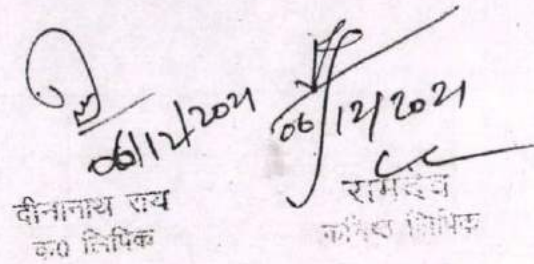 06/12/2021
06/12/2021
दीनानाथ राय
क0 लिपिक
रामदेव
कनिष्ठ लिपिक